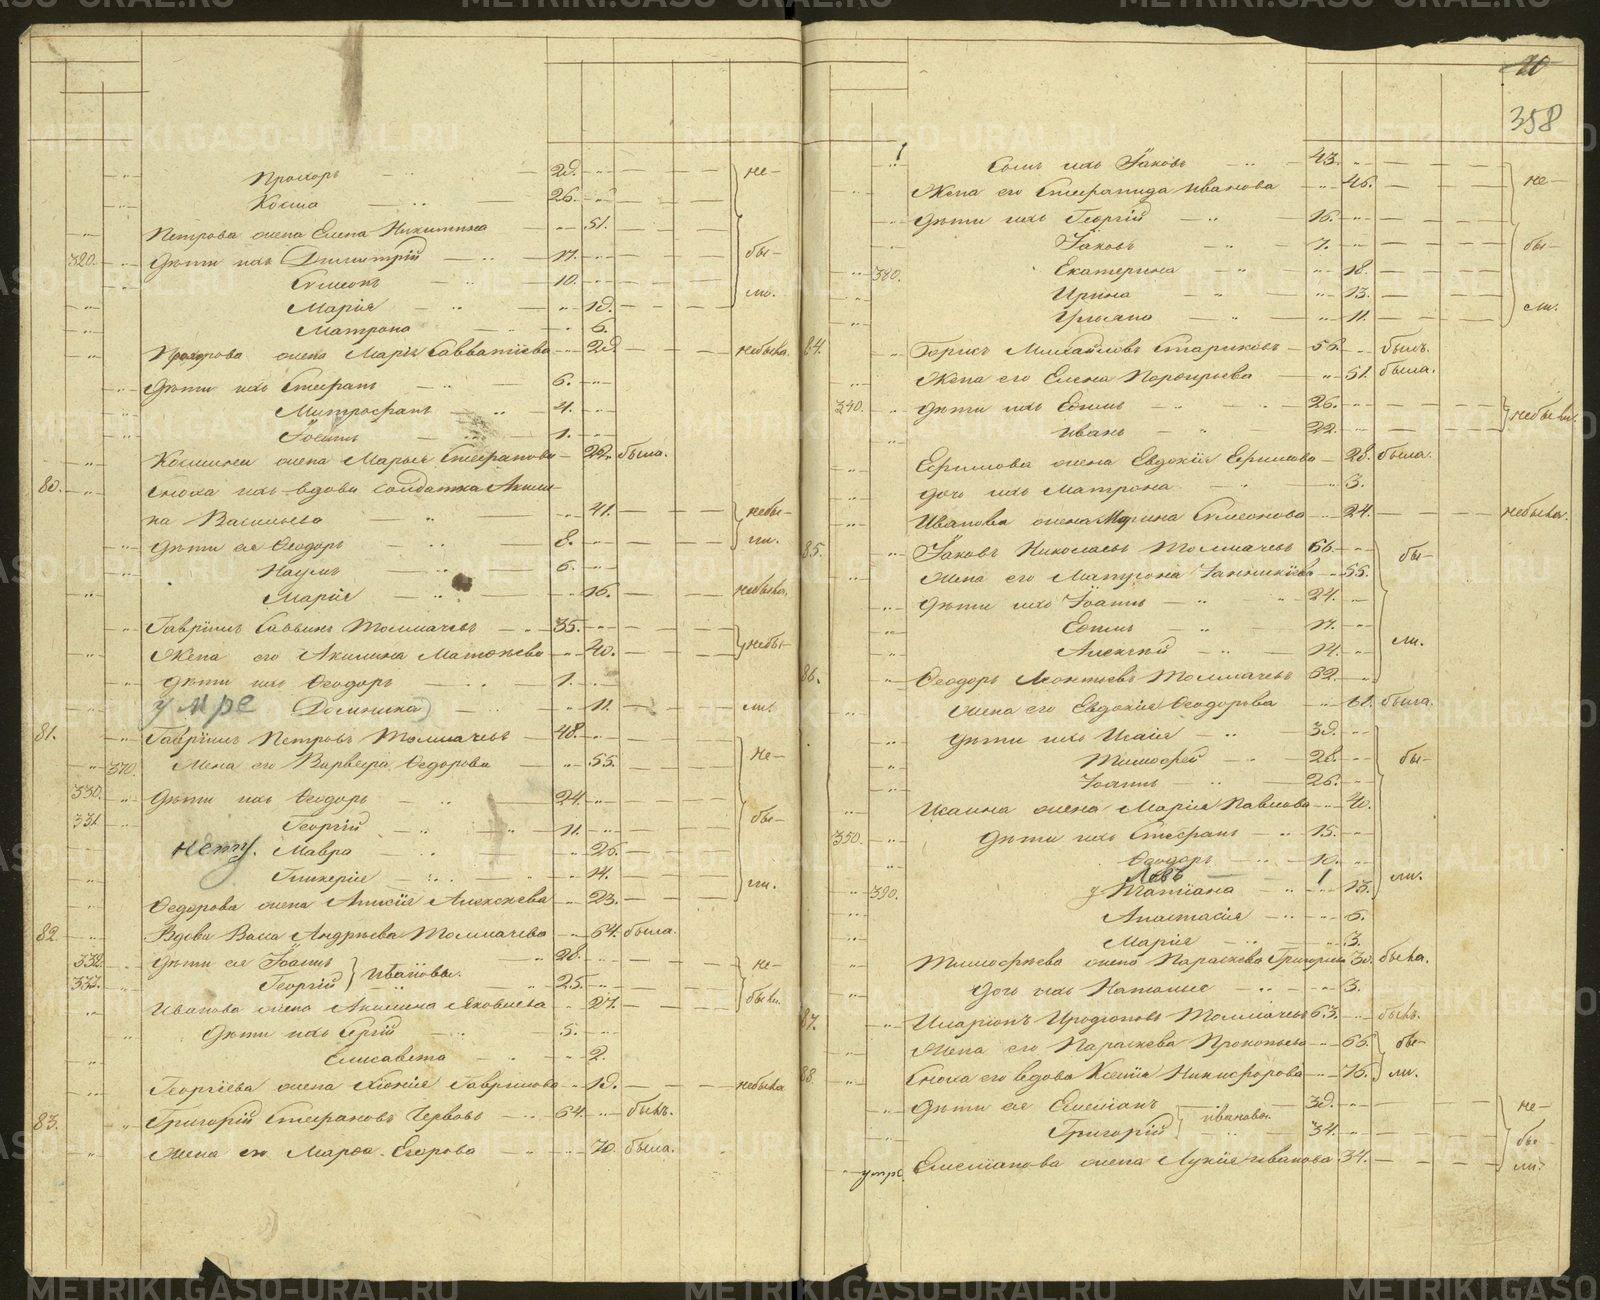 Прохоръ 29.
Козма 26.
не-
Петрова жена Елена Никитина 51.
320. Дѣти ихъ Димитрій 17.
бы-
Симеонъ 10.
ли.
Марія 19.
Матрона 6.
Прохорова жена Марія Савватіева 29. небыла.
Дѣти ихъ Стефанъ 6.
Митрофанъ 4.
1.
Козмина жена Марья Стефанова 22. была.
80. Сноха ихъ вдова солдатка Акили-
на Васильева 41. небы-
Дѣти ея Ѳеодоръ 8. ли.
Наумъ 6.
Марія 16. небыла.
Гавріилъ Саввинъ Толмачевъ 35.
Жена его Акилина Матѳеева 40. небы-
Дѣти ихъ Ѳеодоръ 1.
умре Домника 11. ли.
81. Гавріилъ Петровъ Толмачевъ 48.
370. Жена его Варвара Ѳедорова 55. не-
330. Дѣти ихъ Ѳеодоръ 24.
331. Георгій 11. бы-
нету. Мавра 26.
Гликерія 14. ли.
Ѳедорова жена Алексѣева 23.
82. Вдова Васса Андрѣева Толмачева 64. была.
332. Дѣти ея Іоаннъ 28. не-
333. Георгій Ивановы. 25.
Иванова жена Акилина Яковлева 27. были.
Дѣти ихъ Сергій 5.
Елисавета 2.
Георгіева жена Хіонія Гаврилова 19. небыла
83. Григорій Стефановъ Червовъ 64. былъ.
Жена его Марѳа Егорова 70. была.
70
358
Сынъ ихъ Іаковъ 43.
Жена его Степанида Иванова 46. не-
Дѣти ихъ Георгій 16.
Іаковъ 7. бы-
380. Екатерина 18.
Ирина 13.
Ульяна 11. ли.
84. Борисъ Михайловъ Стариковъ 56. былъ.
Жена его Елена Порфирьева 51. была.
340. Дѣти ихъ Ефимъ 26. небыли.
Иванъ 22.
Ефимова жена Евдокія Ефимова 28. была.
Дочь ихъ Матрона 3.
Иванова жена Марина Симеонова 24. небыла.
85. Іаковъ Николаевъ Толмачевъ 66. бы-
Жена его Матрона 55.
Дѣти ихъ Іоаннъ 24.
Ефимъ 17.
Алексѣй 14. ли.
86. Ѳеодоръ Леонтьевъ Толмачевъ 62.
Жена его Евдокія Ѳеодорова 61. была.
Дѣти ихъ Исаія 39.
Тимофей 28. бы-
Іоаннъ 26.
Исаина жена Марія Павлова 40.
350. Дѣти ихъ Стефанъ 15.
Ѳеодоръ 10.
Левъ 1 ли.
390. Татіана 13.
Анастасія 6.
Марія 3.
Тимофѣева жена Параскева Григорьева 30. была.
Дочь ихъ Наталія 3.
87. Иларіонъ Иродіоновъ Толмачевъ 63. былъ.
Жена его Параскева Прокопьева 66. бы-
88. Сноха его вдова Ксенія Никифорова 76. ли.
Дѣти ея Емеліанъ 39. не-
Григорій Ивановы. 34. бы-
умре Емеліанова жена Лукія Иванова 34. ли.